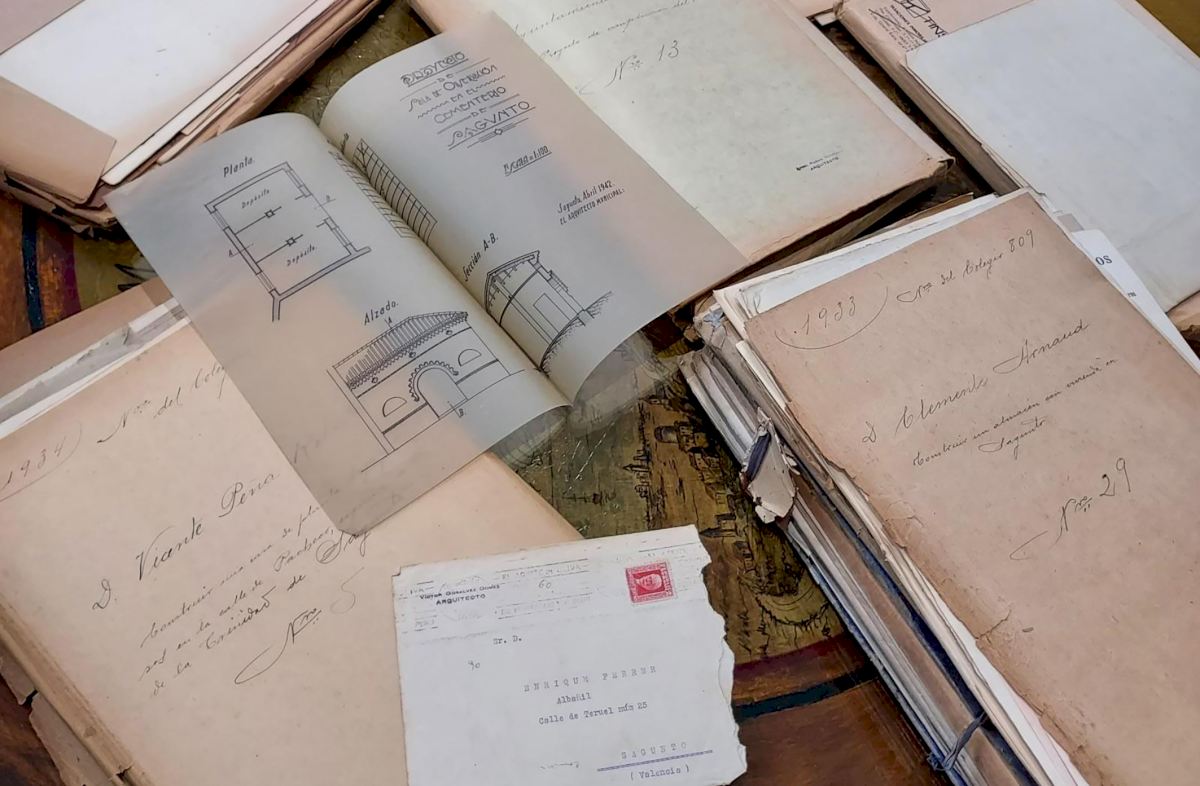 PROYECTO
DE
SALA DE OBSERVACIÓN
EN EL
CEMENTERIO
DE
SAGUNTO
ESCALA = 1:100
Sagunto, Abril 1942.
EL ARQUITECTO MUNICIPAL:
Planta.
Depósito
Depósito
A
B
Sección A-B.
Alzado.
Ayuntamiento
Nº 13
ARQUITECTO
1933
Nº del Colegio 809
D. Clemente Arnaud
Construir un almacén con vivienda en
Sagunto
Nº 29
OS
1934
Nº del Coleg
D. Vicente Peris
Construir una casa de planta
en la calle de Pacheco,
de la Trinidad de Sag
Nº 5
VICTOR GOSALVEZ GOMEZ
ARQUITECTO
60
Sr. D.
ENRIQUE FERRER
Albañil
Calle de Teruel núm 25
SAGUNTO
(Valencia)